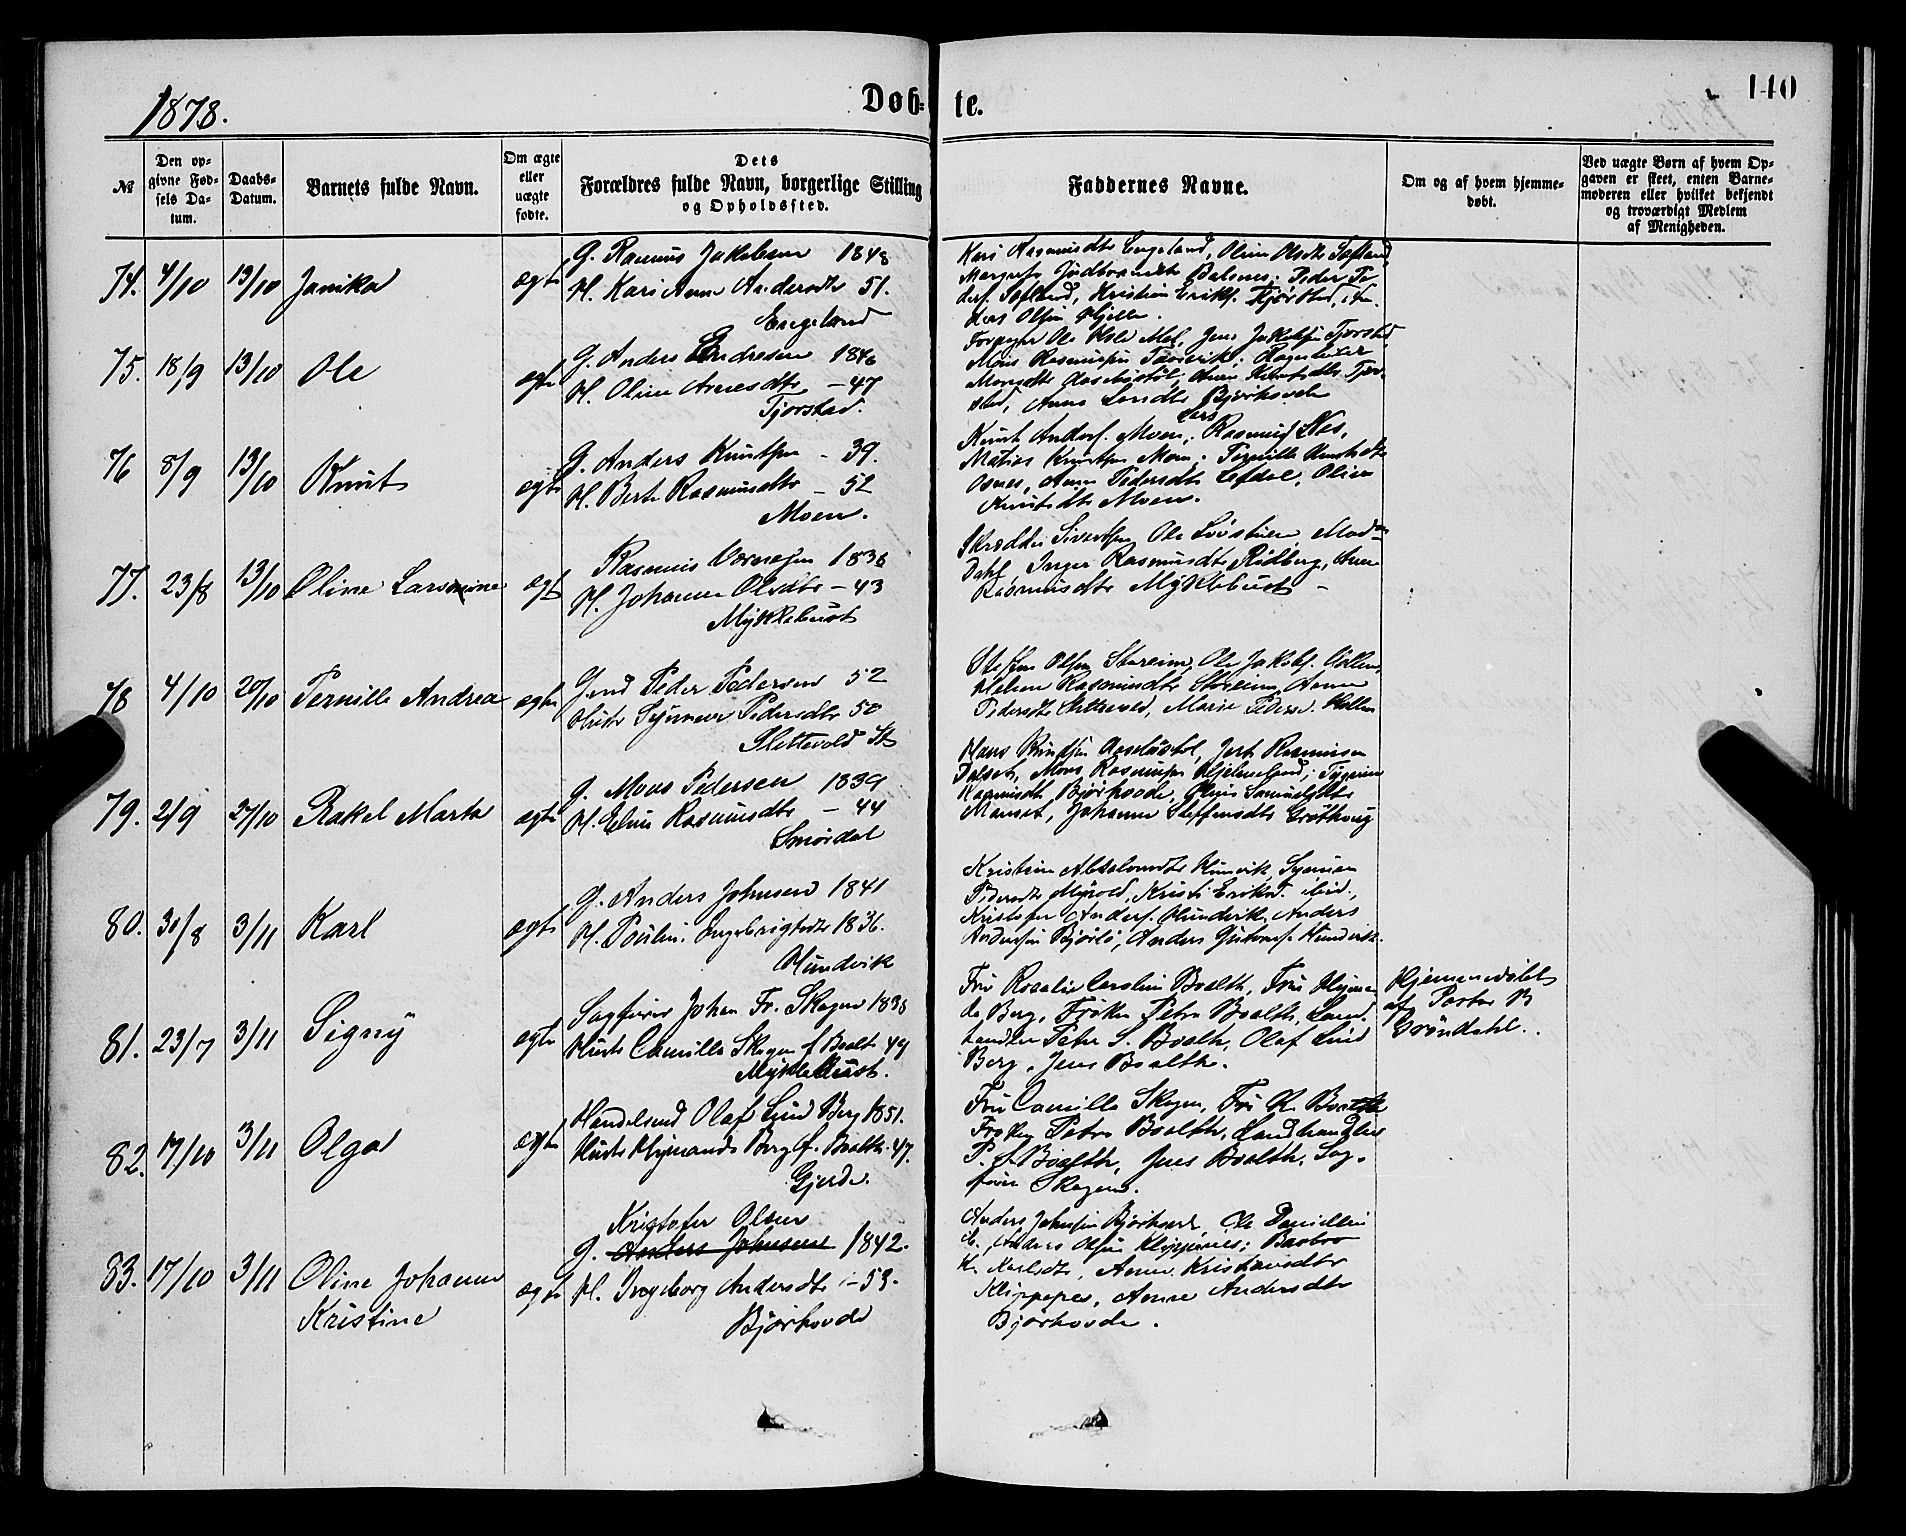 1878.
Døb-
te.
140
№
Den op-
givne Fød-
sels Da-
tum.
Daabs-
Datum.
Barnets fulde Navn.
Om ægte
eller
uægte
fødte.
Dets
Forældres fulde Navn, borgerlige Stilling
og Opholdssted.
Faddernes Navne.
Om og af hvem hjemme-
døbt.
Ved uægte Børn af hvem Op-
gaven er skeet, enten Barne-
moderen eller hvilket bekjendt
og troværdigt Medlem
af Menigheden.
74. 4/10 13/10 Janika ægte
G. Rasmus Jakobsen 1848
H. Kari Anne Andersdtr 51.
Engeland
Kari Rasmusdtr Engeland, Oline Olsdtr Tofland
Balsnes, Peder Pe-
ders. Tofland, Kristian Eriks. Tjørstad, An-
ders Olsen Hjelle.
75. 18/9 13/10 Ole ægte
G. Anders Andresen 1846
H. Oline Arnesdtr - 47
Tjorstad.
Forsanger Ole Mel, Jens Jakobsen Tjorstad
Mons Rasmussen
Monsdtr Aasebostøl, Anne Knutsdtr Tjor-
stad, Anne Larsdtr Bjørhovde
76 8/9 13/10 Knut ægte
G. Anders Knutsen - 39.
H. Berte Rasmusdtr - 52
Moen.
Knut Anders. Moen, Lars Rasmus. Nes,
Matias Knutsen Moen, Pernille Knutsdtr
Osnes, Anne Pedersdtr Lefdal, Oline
Knutsdtr Moen.
77. 23/8 13/10 Oline Larsine ægt
Rasmus 1838
H. Johanne Olsdtr - 43
Myklebust
Skrædder Sivertsen, Ole Løvstuen, Madm
Dahl, Inger Rasmusdtr Rødberg, Anne
Rasmusdtr Myklebust -
78 4/10 20/10 Pernille Andrea ægte
Gmd Peder Pedersen 52
Hustr Synneve Pedersdtr 50
Slettevold St
Steffen Olsen Storeim, Ole Jakobs.
Helene Rasmusdtr Storeim, Anne
Pedersdtr Slettevold, Marie Pedersd.
79. 2/9 27/10 Rakel Marta ægte
G. Mons Pedersen 1839
H. Eline Rasmusdtr - 44
Smördal
Hans Aasebøstøl, Jert Rasmussen
Dalset, Mons Rasmussen Hjelmeland,
Rasmusdtr Bjørhovde,
Manset, Johanne Steffensdtr Grøthaug
80. 30/8 3/11 Karl ægte
G. Anders Johnsen 1841
H. Pouline Ingebrigtsdtr 1836.
Hundvik
Kristine Absalonsdtr Hunvik,
Pedersdtr Myrold, Kristi Eriksd. ibid.,
Kristofer Anders. Hundvik, Anders
Andersen Bjørlo, Anders Hundvik.
81. 23/7 3/11 Signy ægte
Sagfører Johan Fr. Skogen 1838
Hustr Camilla Skogen f. Boalth 49
Myklebust.
Fru Rosalie Caroline Boalth, Fru
da Berg, Frøken Petra Boalth, Land-
handler Peter S. Boalth, Olaf Lind
Berg, Jens Boalth.
Hjemmedøbt
af Pastor B
Gröndahl.
82. 17/10 3/11 Olga ægte
Handelsmd Olaf Lind Berg 1851.
Hustr Hymanda Berg f. Boalth. 47.
Gjerde.
Fru Camilla Skogen, Fru R. Boalth
Frøken Petra Boalth, Landhandler
P. S. Boalth, Jens Boalth, Sag-
fører Skogen.
83. 17/10 3/11 Oline Johanne
Kristine
ægte
Kristofer Olsen
G. Anders Johnsen 1842.
H. Ingeborg Andersdtr - 53.
Bjørhovde
Anders Johnsen Bjørhovde, Ole Danielsen
ib., Anders Olsen Klippenes; Barbro
K. Karlsdtr, Anne Kristiansdtr
Klippenes, Anne Andersdtr
Bjørhovde.